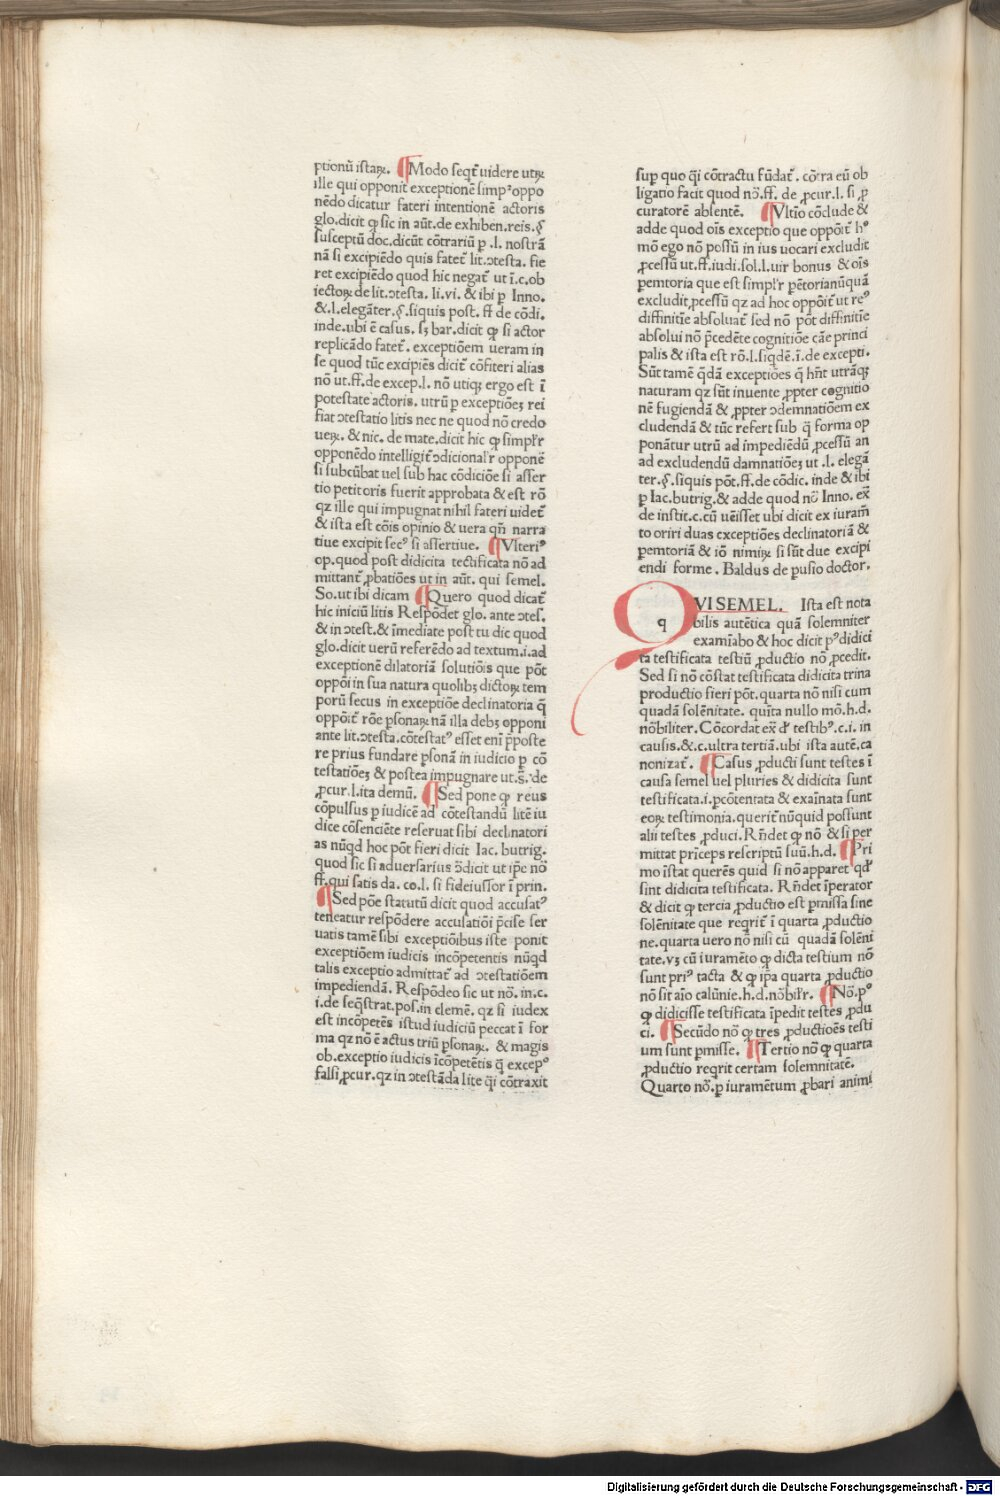 ptionū istaꝝ. ¶ Modo seqt̄ uidere utꝝ
ille qui opponit exceptionē simpꝰ oppo
nēdo dicatur fateri intentionē actoris
glo.dicit ꝙ sic in aūt.de exhiben.reis.§
susceptū doc.dicūt cōtrariū p .l. nostrā
nā si excipiēdo quis fatet᷑ lit.ↄtesta. fie
ret excipiēdo quod hic negat᷑ ut ī.c.ob
iectoꝝ de lit.ↄtesta. li.vi. & ibi p Inno.
&.l.elegāter.§.siquis post. ff de cōdi.
inde.ubi ē casus. sꝫ bar.dicit ꝙ si actor
replicādo fatet᷑. exceptiōem ueram in
se quod tūc excipiēs dicit᷑ cōfiteri alias
nō ut.ff.de excep.l. nō utiqꝫ ergo est ī
potestate actoris. utrū p exceptiōeꝫ rei
fiat ↄtestatio litis nec ne quod nō credo
ueꝝ. & nic. de mate.dicit hic ꝙ simpl'r
opponēdo intelligit᷑ ↄdicional'r opponē
si subcūbat uel sub hac cōdiciōe si asser
tio petitoris fuerit approbata & est rō
qz ille qui impugnat nihil fateri uidet᷑
& ista est cōis opinio & uera qn̄ narra
tiue excipit secꝰ si assertiue. ¶ Vlteriꝰ
op.quod post didicita tectificata nō ad
mittant᷑ ꝓbatiōes ut in aūt. qui semel.
So.ut ibi dicam ¶ Quero quod dicat᷑
hic iniciū litis Respōdet glo. ante ↄtes.
& in ↄtest.& īmediate post tu dic quod
glo.dicit uerū referēdo ad textum.i.ad
exceptionē dilatoriā solutiōis que pōt
oppōi in sua natura quolibꝫ dictoꝝ tem
porū secus in exceptiōe declinatoria q̄
oppōit᷑ rōe ꝑsonaꝝ nā illa debꝫ opponi
ante lit.ↄtesta.cōtestatꝰ esset eni p̄poste
re prius fundare ꝑsonā in iudicio ꝑ cō
testatiōeꝫ & postea impugnare ut.s̄. de
ꝓcur.l.ita demū. ¶ Sed pone ꝙ reus
cōpulsus p iudicē ad cōtestandū litē iu
dice cōsenciēte reseruat sibi declinatori
as nūqd hoc pōt fieri dicit Iac. butrig.
quod sic si aduersarius ↄ̄dicit ut ip̄e nō
ff.qui satis da. co.l. si fideiussor ī prin.
¶ Sed pōe statutū dicit quod accusatꝰ
teneatur respōdere accusatiōi p̄cise ser
uatis tamē sibi exceptiōibus iste ponit
exceptiōem iudicis incōpetentis nūqd
talis exceptio admittat᷑ ad ↄtestatiōem
impediendā. Respōdeo sic ut nō. in.c.
i.de seq̄strat.pos.in clemē. qz si iudex
est incōpetēs istud iudiciū peccat ī for
ma qz nō ē actus triū ꝑsonaꝝ. & magis
ob.exceptio iudicis īcōpetētis q̄ excepº
falsi ꝓcur.qz in ↄtestāda lite q̄i cōtraxit
sup quo q̄i cōtractu fūdat᷑. cōtra eū ob
ligatio facit quod nō.ff. de ꝓcur.l. si ꝓ
curatorē absentē. ¶ Vltīo cōclude &
adde quod oīs exceptio que oppōit᷑ hº
mō ego nō possū in ius uocari excludit
ꝓcessū ut.ff.iudi.sol.l.uir bonus & oīs
pemtoria que est simpl'r pētorianūquā
excludit,ꝓcessū qz ad hoc oppōit᷑ ut reꝰ
diffinitīe absoluat᷑ sed nō pōt diffinitīe
absolui nō p̄cedēte cognitiōe cāe princi
palis & ista est rō.l.siqdē.ī.de excepti.
Sūt tamē q̄dā exceptiōes q̄ hn̄t utrāqꝫ
naturam qz sūt inuente ꝓpter cognitio
nē fugiendā & ꝓpter ↄdemnatiōem ex
cludendā & tūc refert sub q̄ forma op
ponātur utrū ad impediēdū ꝓcessū an
ad excludendū damnatiōeꝫ ut .l. elegā
ter.§.siquis pōt.ff.de cōdic. inde & ibi
p Iac.butrig.& adde quod nō Inno. ex̄
de instit.c.cū uēisset ubi dicit ex iuram̄
to oriri duas exceptiōes declinatoriā &
pemtoriā & iō nimiꝝ si sūt due excipi
endi forme. Baldus de pusio doctor.
QVI SEMEL. Ista est nota
q bilis autētica quā solemniter
examīabo & hoc dicit pꝰ didici
ta testificata testiū ꝓductio nō ꝓcedit.
Sed si nō cōstat testificata didicita trina
productio fieri pōt. quarta nō nisi cum
quadā solēnitate. quīta nullo mō.h.d.
nōbiliter. Cōcordat ex̄ d' testibꝰ.c.i. in
causis.&.c.ultra tertiā.ubi ista autē.ca
nonizat᷑. ¶ Casus ꝓducti sunt testes ī
causa semel uel pluries & didicita sunt
testificata.i.pcōtentata & exaīnata sunt
eoꝝ testimonia.querit᷑ nūquid possunt
alii testes ꝓduci. Rn̄det ꝙ nō & si per
mittat prīceps rescriptū suū.h.d. ¶ Pri
mo īstat querēs quid si nō apparet qd'
sint didicita testificata. Rn̄det īperator
& dicit ꝙ tercia ꝓductio est pmissa sine
solēnitate que reqrit᷑ ī quarta ꝓductio
ne.quarta uero nō nisi cū quadā solēni
tate.vꝫ cū iuramēto ꝙ dicta testium nō
sunt priꝰ tacta & ꝙ ip̄a quarta ꝓductio
nō sit aīo calūnie.h.d.nōbil'r. ¶ Nō.pº
ꝙ didicisse testificata īpedit testes ꝓdu
ci. ¶ Secūdo nō ꝙ tres ꝓductioēs testi
um sunt pmisse. ¶ Tertio nō ꝙ quarta
ꝓductio reqrit certam solemnitatē.
Quarto nō.p iuramētum ꝓbari animi
Digitalisierung gefördert durch die Deutsche Forschungsgemeinschaft - DFG